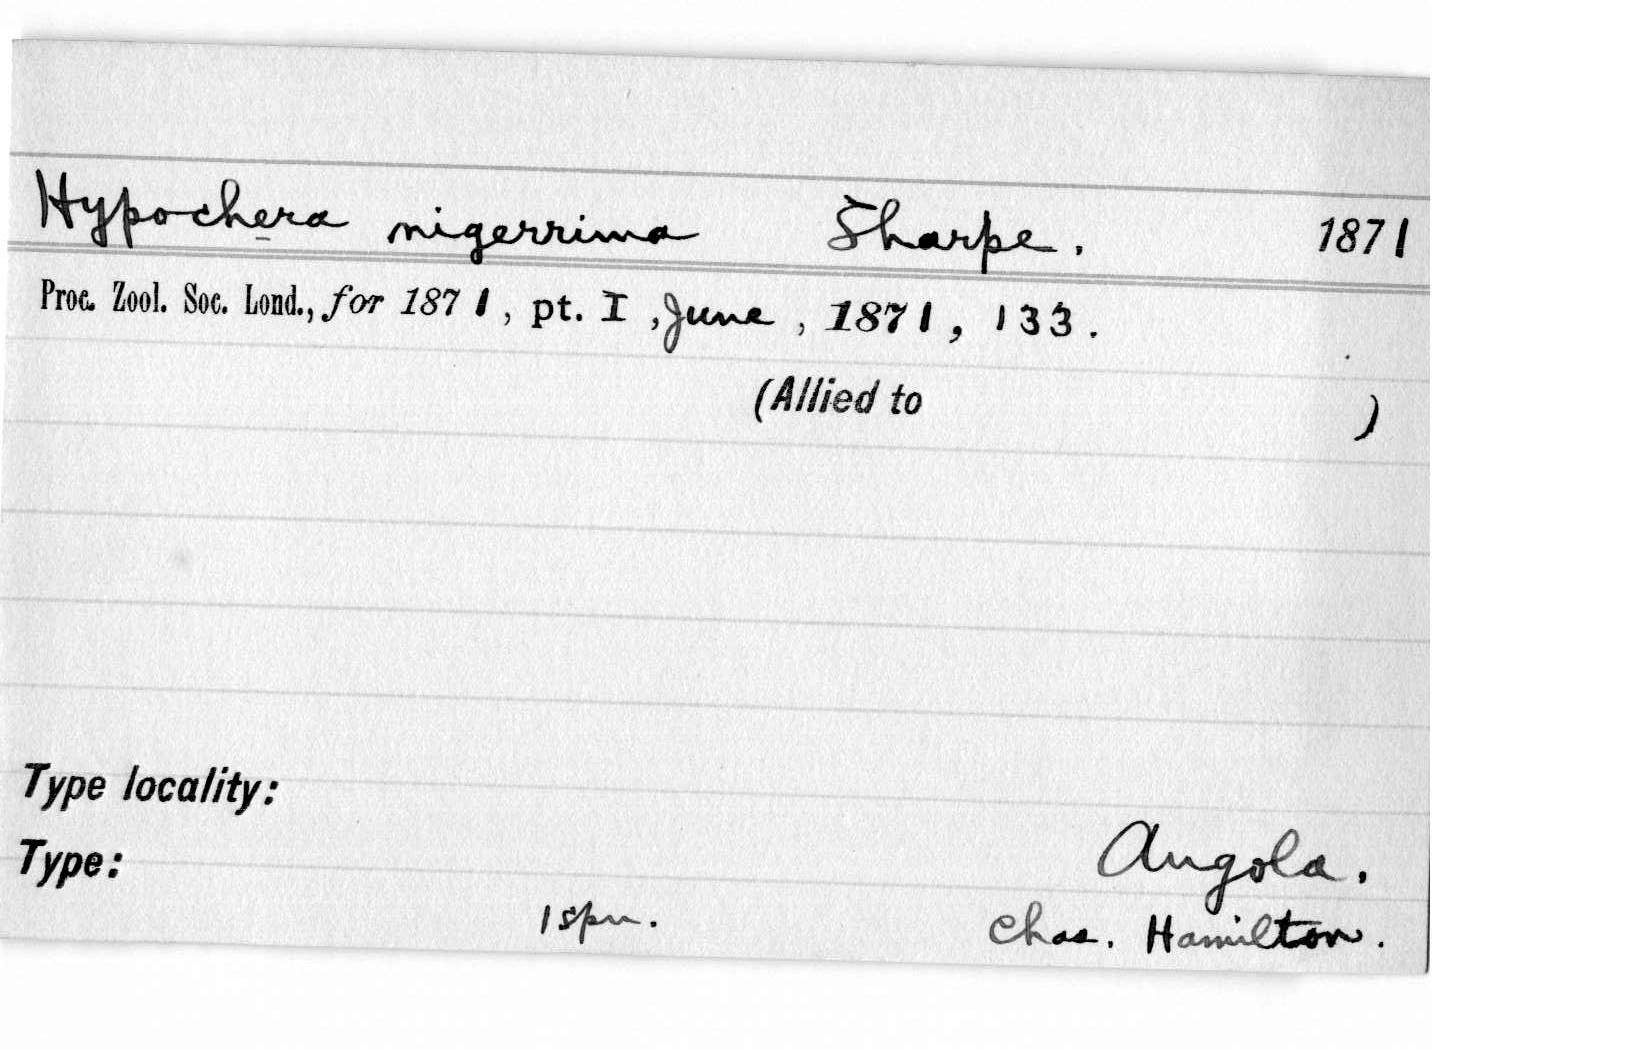 Hypochera nigerrima Sharpe. 1871
Proc. Zool. Soc. Lond., for 1871, pt. I, June, 1871, 133.
(Allied to )
Type locality:
Angola.
Type:
1 spn. Chas. Hamilton.